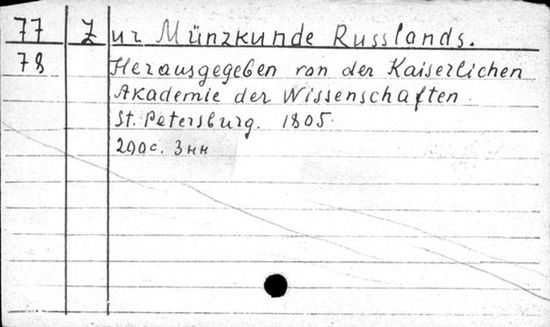 77 Zur Münzkunde Russlands.
78 Herausgegeben von der Kaiserlichen
Akademie der Wissenschaften.
St. Petersburg. 1805.
290с. 3нн